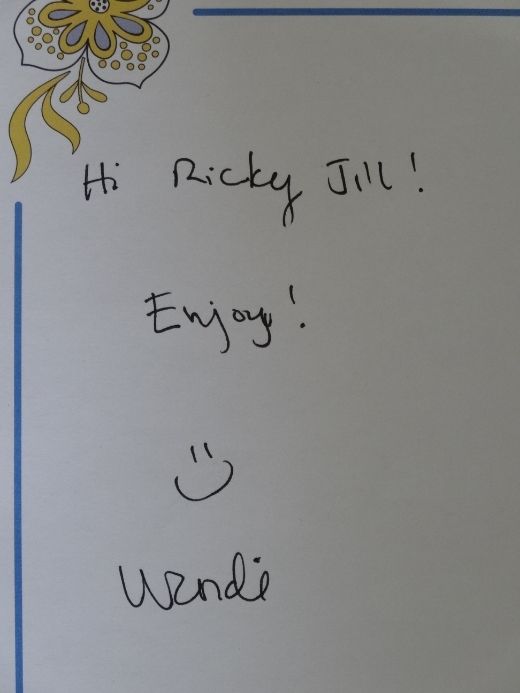 Hi Ricky Jill!
Enjoy!
Wendi